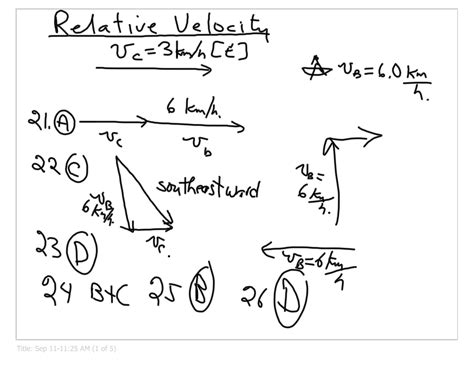 Relative Velocity
v_c = 3 km/h [E]
v_B = 6.0 km/h.
6 km/h.
21. A
v_c
v_b
22 C
southeastward
v_B = 6 km/h.
v_B 6 km/h.
v_c
23 D
v_B = 6 km/h
24 B+C 25 B 26 D
Title: Sep 11-11:25 AM (1 of 5)